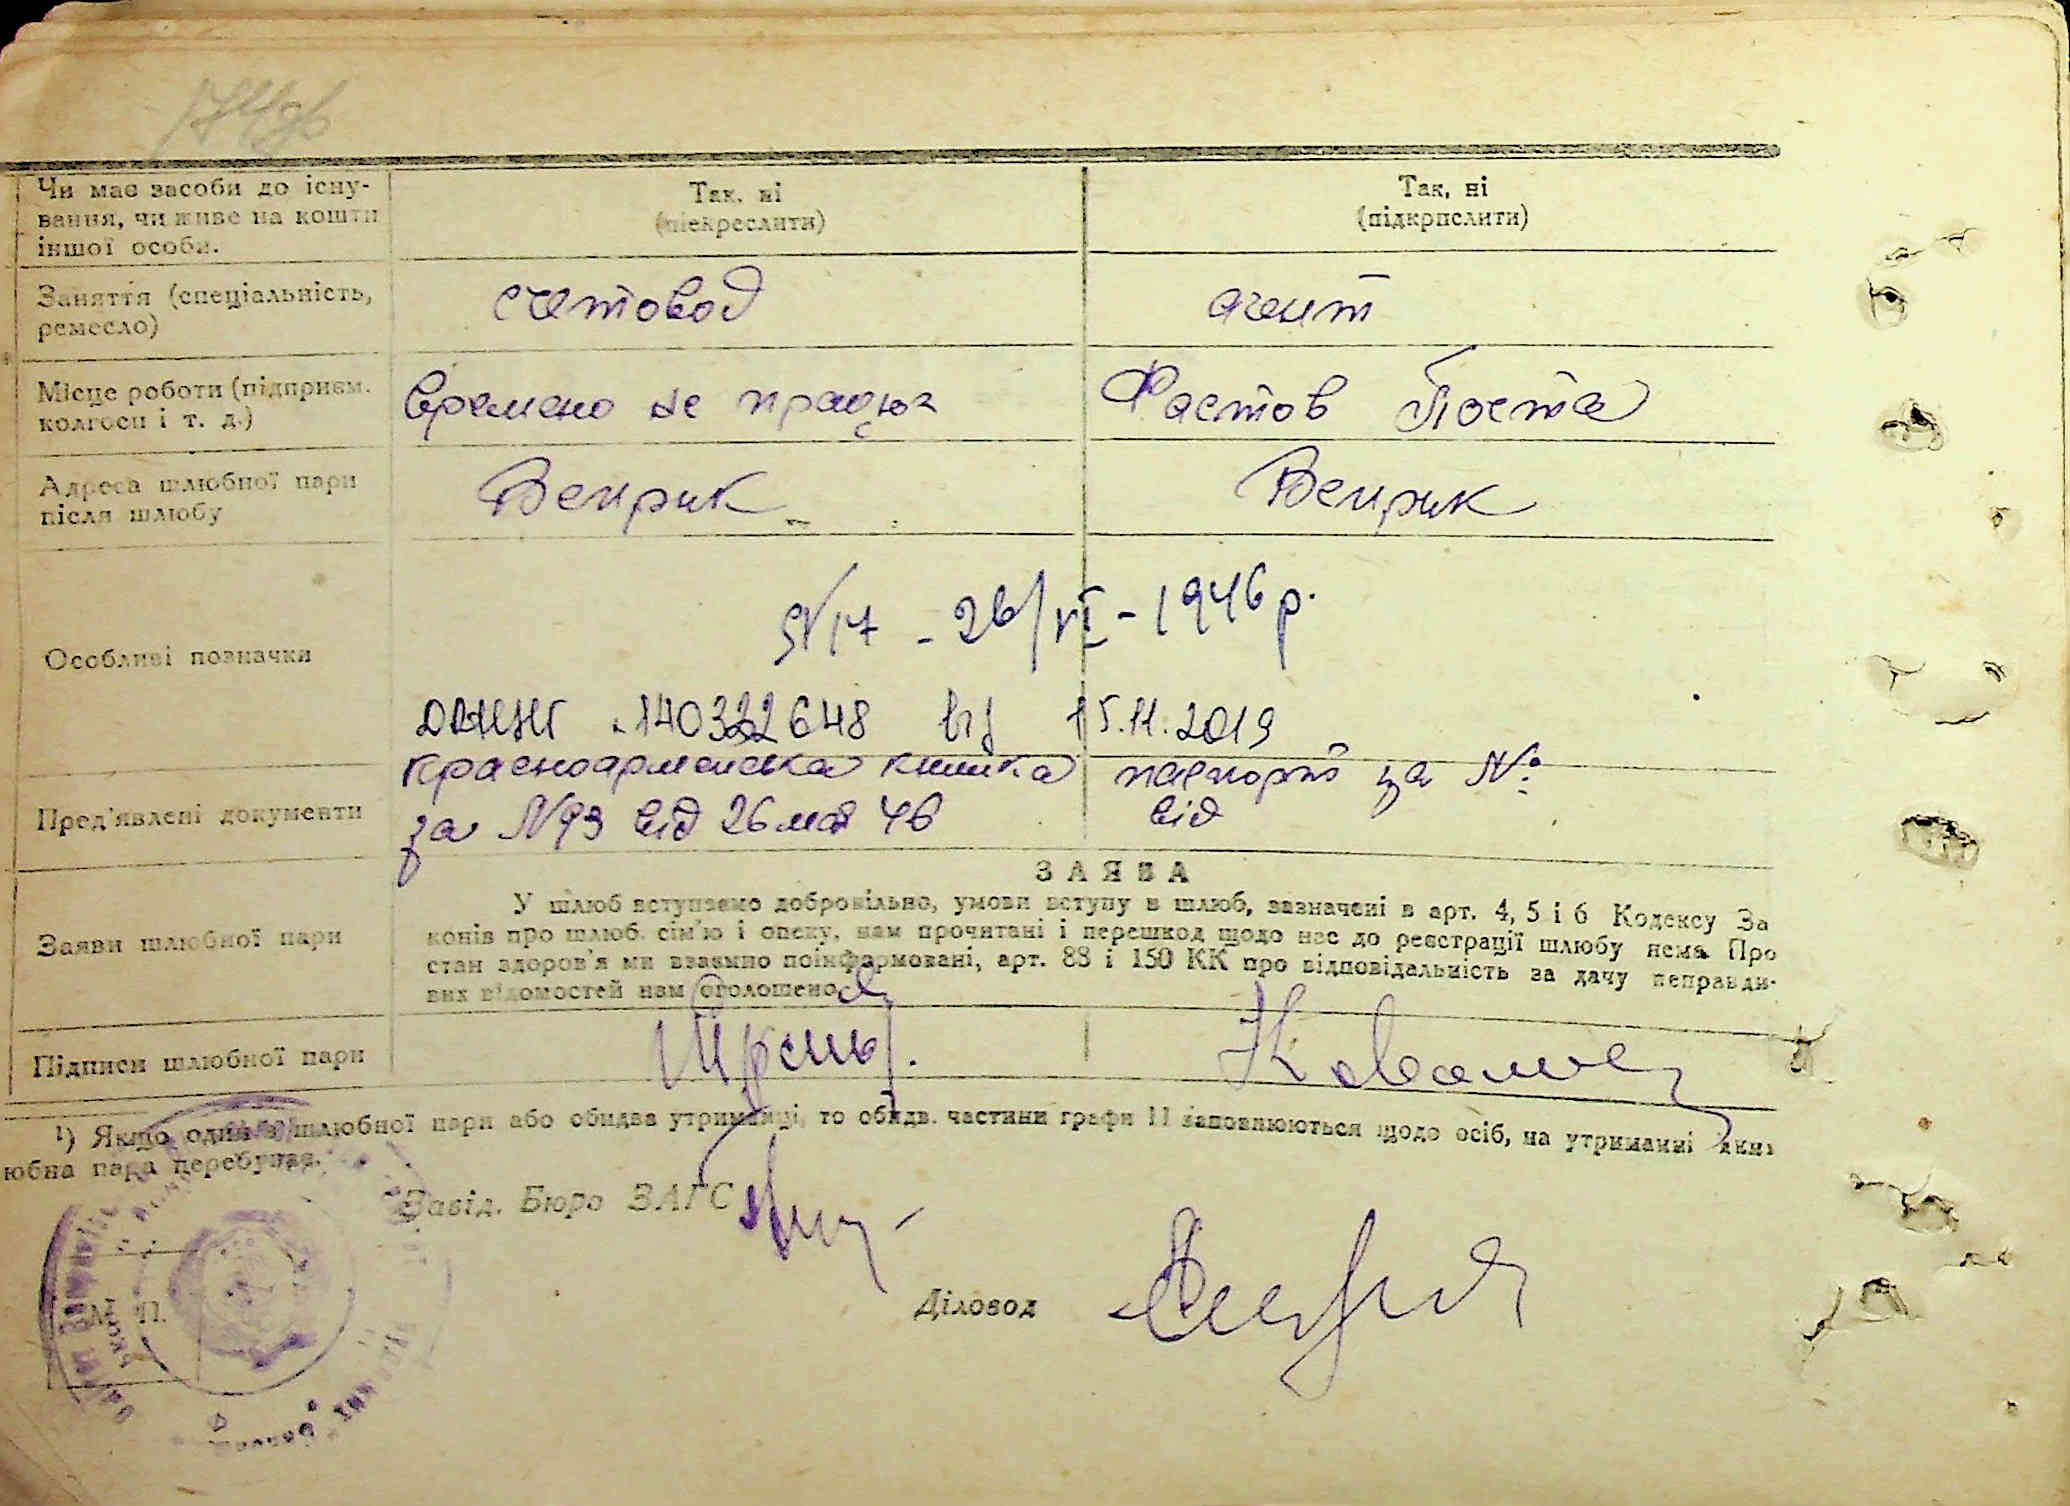 174зв
Чи має засоби до існу-
вання, чи живе на кошти
іншої особи.
Так, ні
(підкреслити)
Так, ні
(підкрпслити)
Заняття (спеціальність,
ремесло)
счетовод
агент
Місце роботи (підприєм.
колгосп і т. д.)
Времено не працює
Фастов Пошта
Адреса шлюбної пари
після шлюбу
Веприк
Веприк
Особливі позначки
№17 - 26/VI - 1946 р.
140322648 від 15.11.2019
Пред'явлені документи
Красноармейська книжка
за №93 від 26 мая 46
паспорт за №
від
Заяви шлюбної пари
ЗАЯВА
У шлюб вступаємо добровільно, умови вступу в шлюб, зазначені в арт. 4, 5 і 6 Кодексу За
конів про шлюб. сім'ю і опеку, нам прочитані і перешкод щодо нас до реєстрації шлюбу нема Про
стан здоров'я ми взаємно поінформовані, арт. 88 і 150 КК про відповідальність за дачу неправди-
вих відомостей нам оголошено
Підписи шлюбної пари
¹) Якщо один з шлюбної пари або обидва утриманці, то обидв. частини графи 11 заповнюються щодо осіб, на утриманні яких
юбна пара перебуває.
Завід. Бюро ЗАГС
М. П.
Діловод